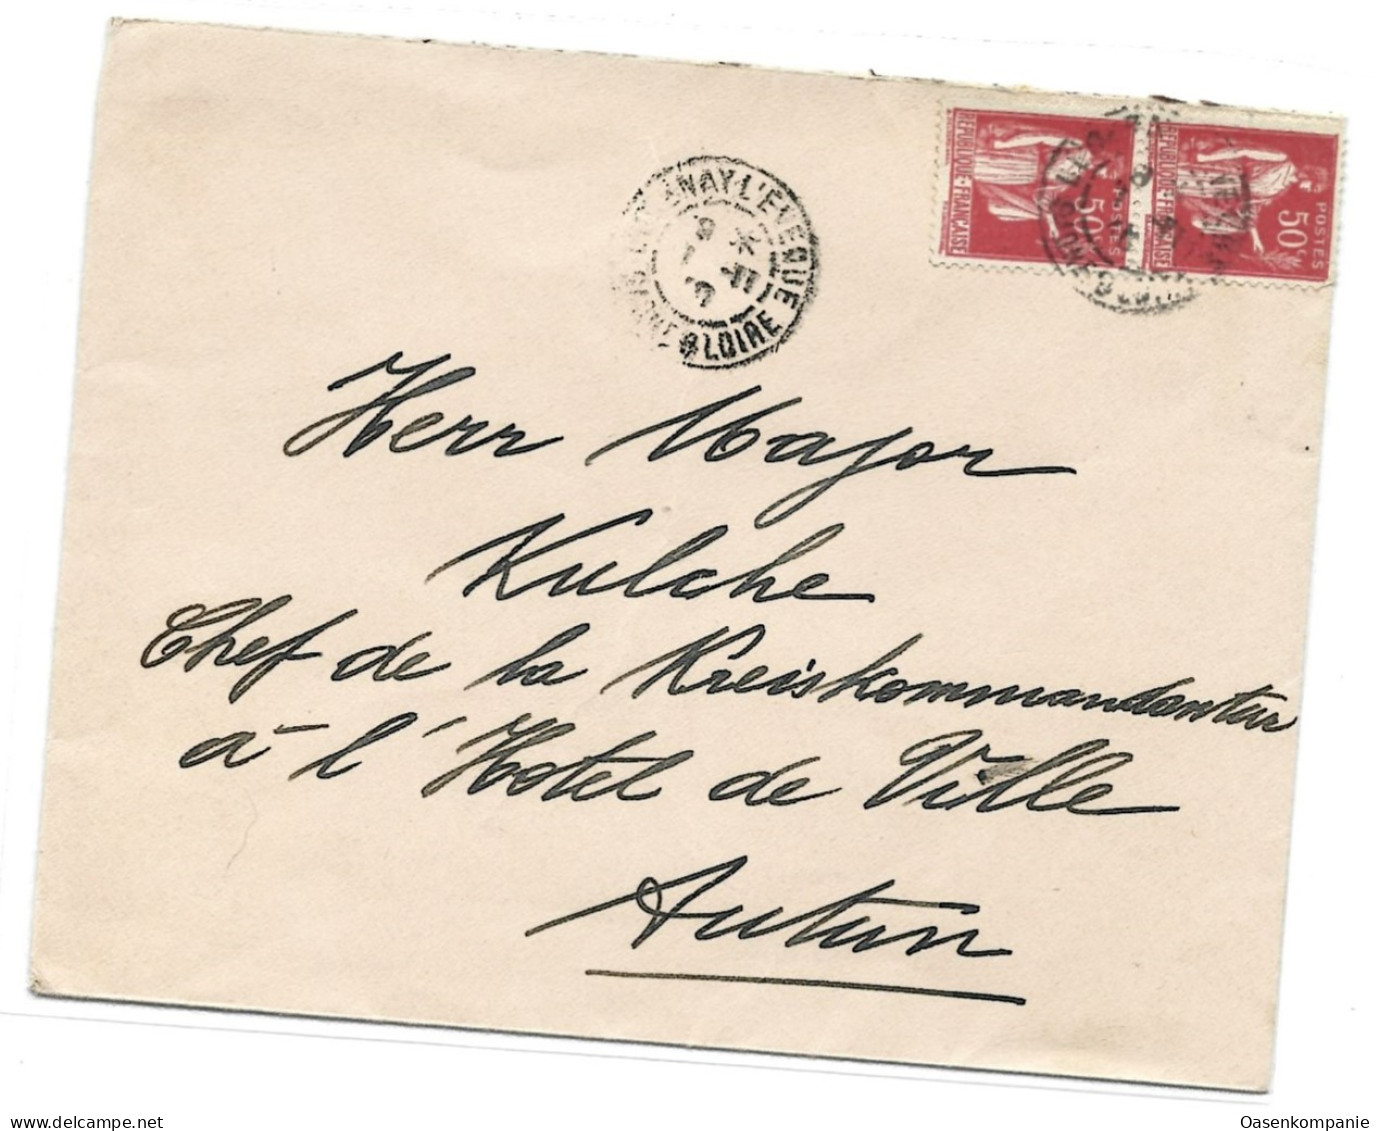 REPUBLIQUE·FRANÇAISE
50c
POSTES
REPUBLIQUE·FRANÇAISE
50c
POSTES
ENAY-L'EVEQUE
LOIRE
Herr Major
Kulche
Chef de la Kreiskommandantur
à l'Hotel de Ville
Autun
delcampe.net
Oasenkompanie